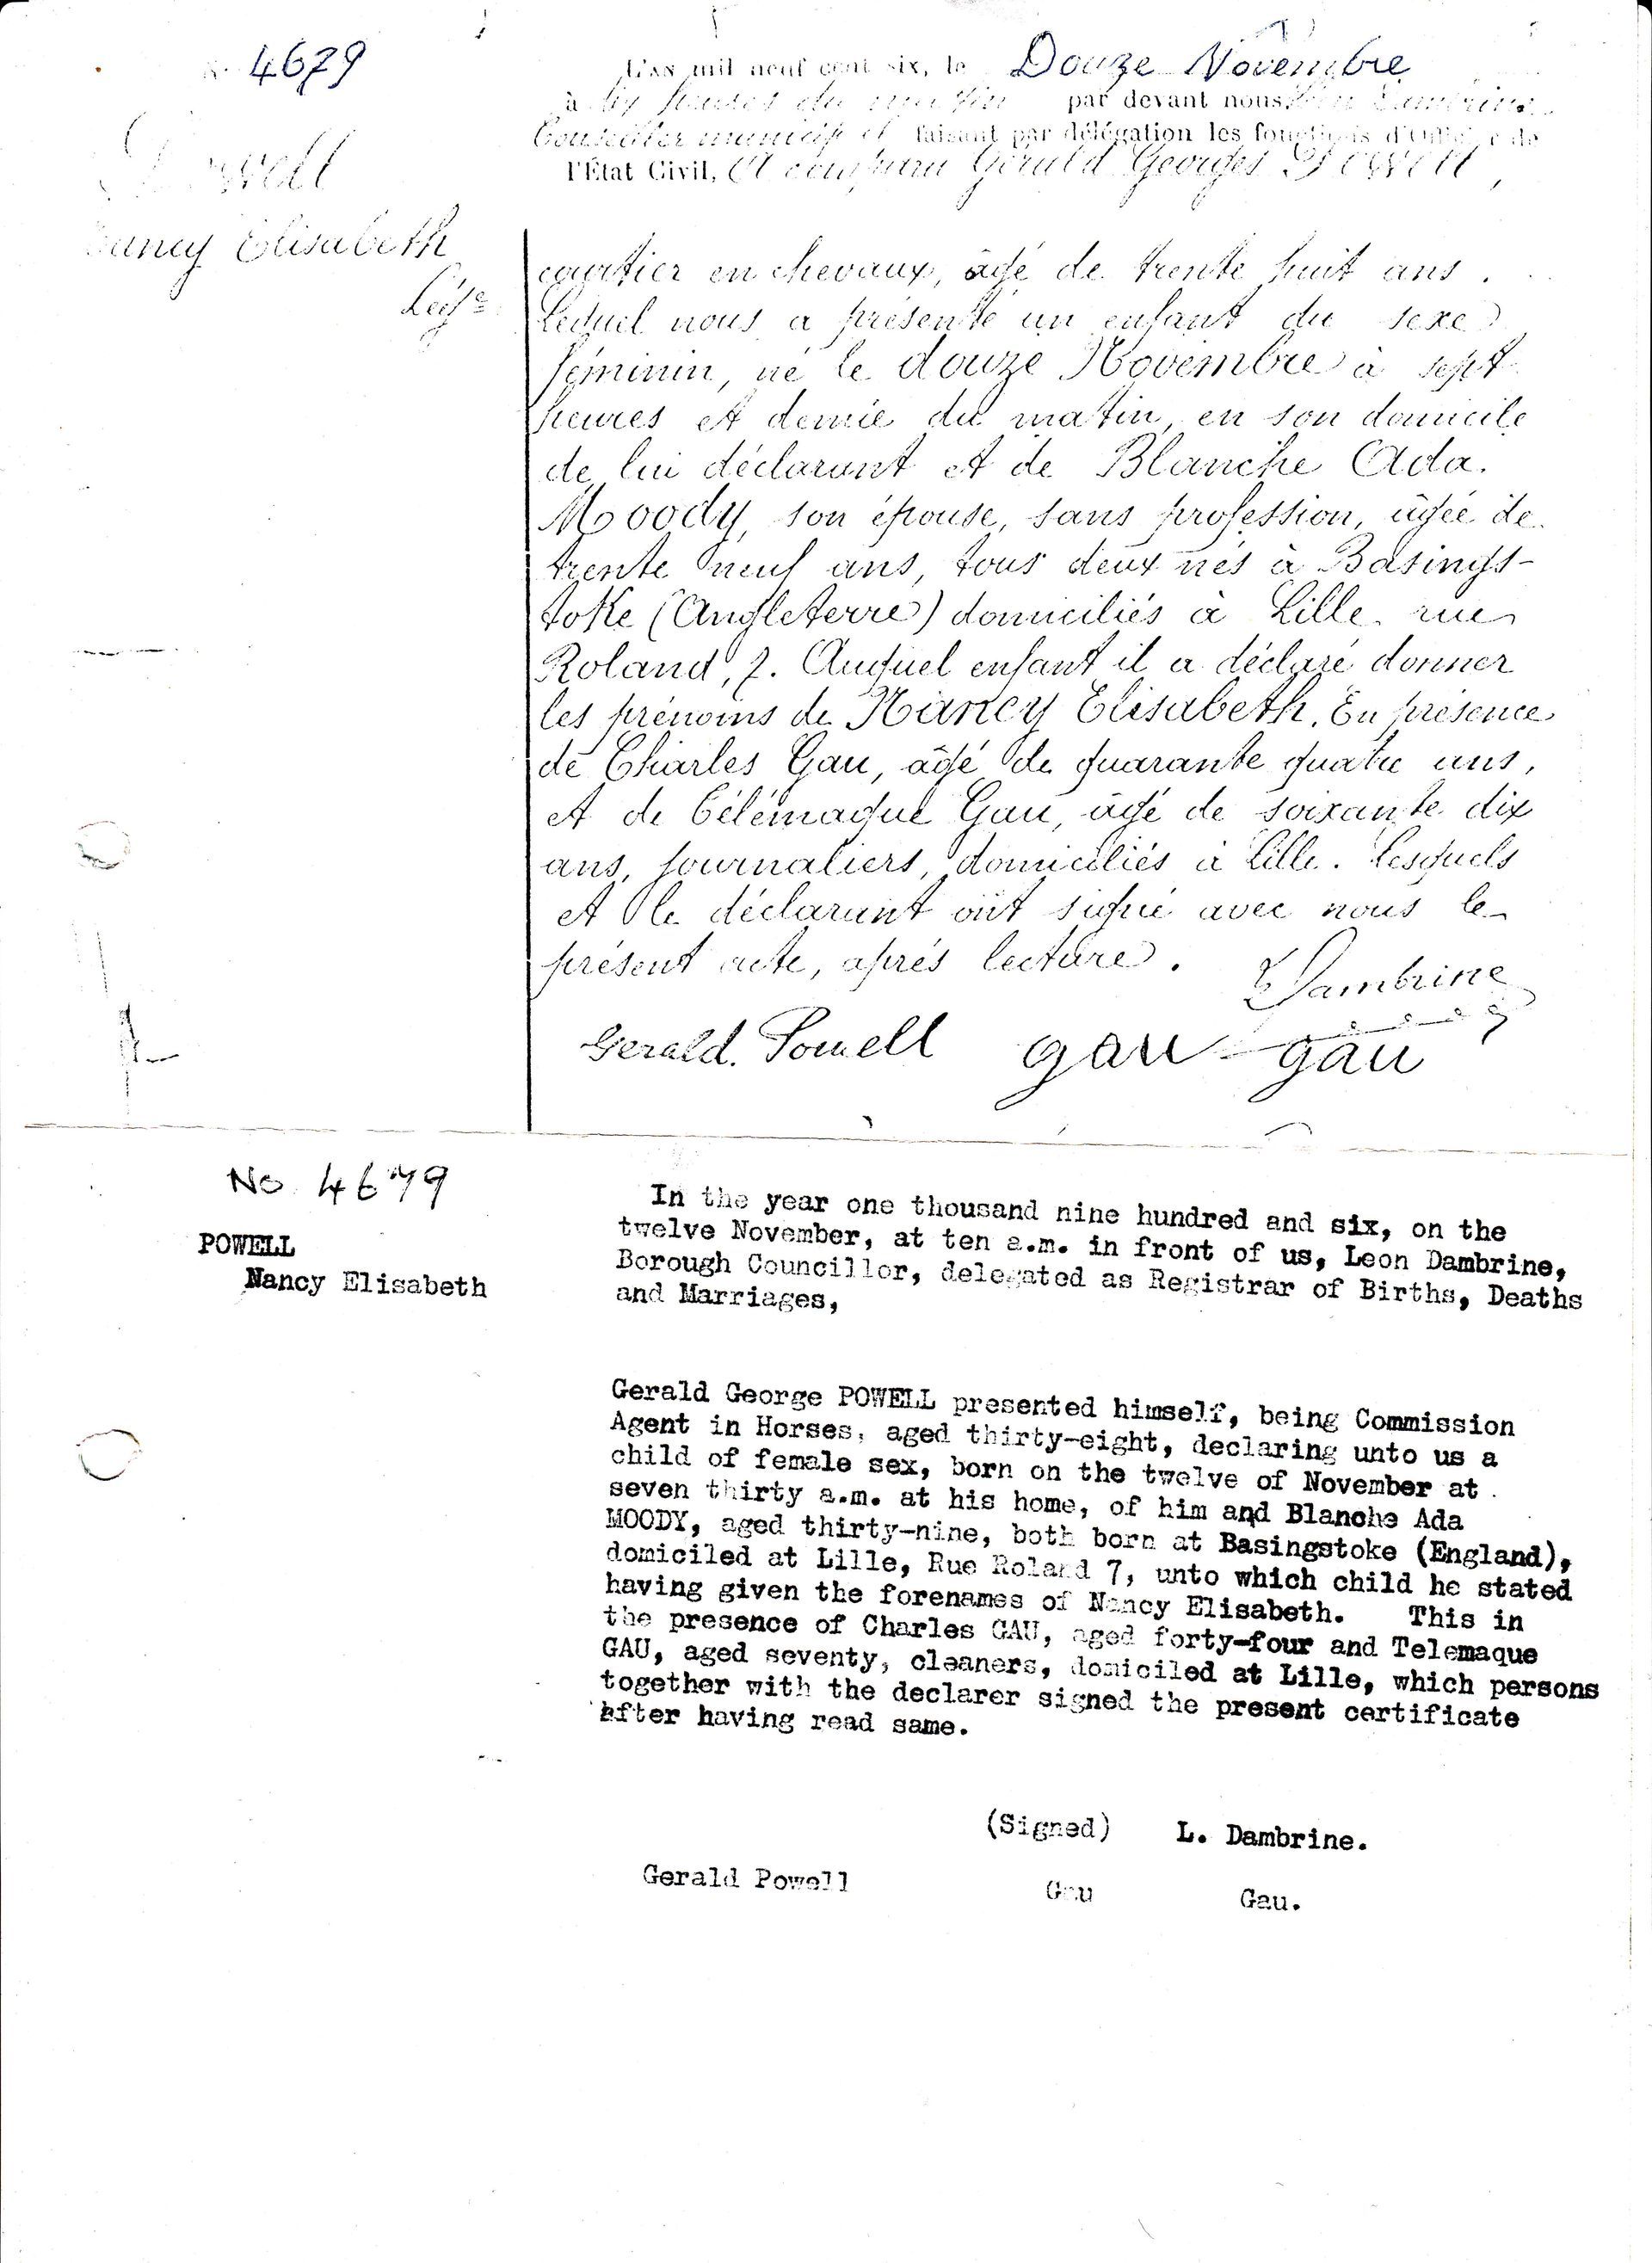 4679
L'an mil neuf cent six, le Douze Novembre
à heures du matin par devant nous,
Conseiller municipal faisant par délégation les fonctions d'Officier de
l'État Civil, A comparu Gérald Georges Powell,
Powell
Nancy Elisabeth
Lég.e
courtier en chevaux, âgé de trente huit ans.
Lequel nous a présenté un enfant du sexe
féminin, né le douze Novembre à sept
heures et demie du matin, en son domicile
de lui déclarant et de Blanche Ada
Moody, son épouse, sans profession, âgée de
trente neuf ans, tous deux nés à Basings-
toke (Angleterre) domiciliés à Lille, rue
Roland, 7. Auquel enfant il a déclaré donner
les prénoms de Nancy Elisabeth. En présence
de Charles Gau, âgé de quarante quatre ans,
et de Télémaque Gau, âgé de soixante dix
ans, journaliers, domiciliés à Lille. Lesquels
et le déclarant ont signé avec nous le
présent acte, après lecture.
Dambrine
Gerald. Powell gau gau
No 4679
POWELL
Nancy Elisabeth
In the year one thousand nine hundred and six, on the
twelve November, at ten a.m. in front of us, Leon Dambrine,
Borough Councillor, delegated as Registrar of Births, Deaths
and Marriages,
Gerald George POWELL presented himself, being Commission
Agent in Horses, aged thirty-eight, declaring unto us a
child of female sex, born on the twelve of November at
seven thirty a.m. at his home, of him and Blanche Ada
MOODY, aged thirty-nine, both born at Basingstoke (England),
domiciled at Lille, Rue Roland 7, unto which child he stated
having given the forenames of Nancy Elisabeth. This in
the presence of Charles GAU, aged forty-four and Telemaque
GAU, aged seventy, cleaners, domiciled at Lille, which persons
together with the declarer signed the present certificate
after having read same.
(Signed) L. Dambrine.
Gerald Powell Gau Gau.